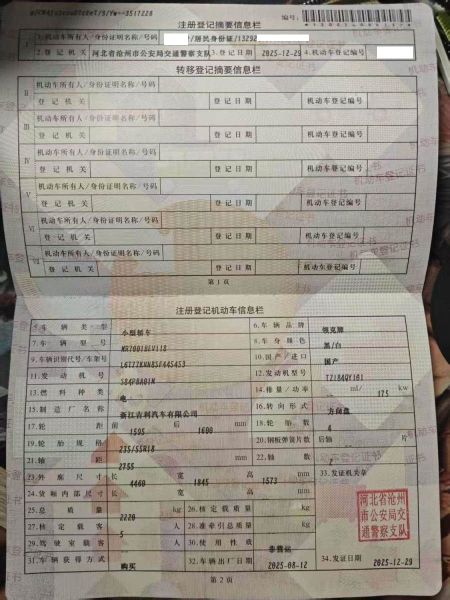 注册登记摘要信息栏
编号:
I
1.机动车所有人/身份证明名称/号码
/居民身份证/13292
2.登记机关 河北省沧州市公安局交通警察支队 3.登记日期 2025-12-29 4.机动车登记编号
转移登记摘要信息栏
II
机动车所有人/身份证明名称/号码
登记机关 登记日期 机动车登记编号
III
机动车所有人/身份证明名称/号码
登记机关 登记日期 机动车登记编号
IV
机动车所有人/身份证明名称/号码
登记机关 登记日期 机动车登记编号
V
机动车所有人/身份证明名称/号码
登记机关 登记日期 机动车登记编号
VI
机动车所有人/身份证明名称/号码
登记机关 登记日期 机动车登记编号
VII
机动车所有人/身份证明名称/号码
登记机关 登记日期 机动车登记编号
第1页
注册登记机动车信息栏
5.车辆类型 小型轿车 6.车辆品牌 领克牌
7.车辆型号 8.车身颜色 黑/白
9.车辆识别代号/车架号 10.国产/进口 国产
11.发动机号 12.发动机型号
13.燃料种类 电 14.排量/功率 ml/ 175 kw
15.制造厂名称 浙江吉利汽车有限公司 16.转向形式 方向盘
17.轮距 前 1595 后 1600 mm 18.轮胎数 4
19.轮胎规格 235/55R18 20.钢板弹簧片数 后轴 片
21.轴距 2755 mm 22.轴数 2
23.外廓尺寸 长 4460 宽 1845 高 1573 mm
33.发证机关章
24.货厢内部尺寸 长 宽 高 mm
25.总质量 2220 kg 26.核定载质量 kg
27.核定载客 5 人 28.准牵引总质量 kg
29.驾驶室载客 人 30.使用性质 非营运
31.车辆获得方式 购买 32.车辆出厂日期 2025-08-12 34.发证日期 2025-12-29
河北省沧州
市公安局交
通警察支队
第2页